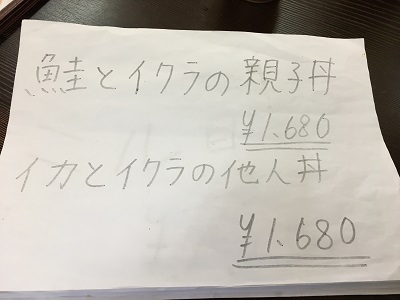 鮭とイクラの親子丼
¥1,680
イカとイクラの他人丼
¥1,680